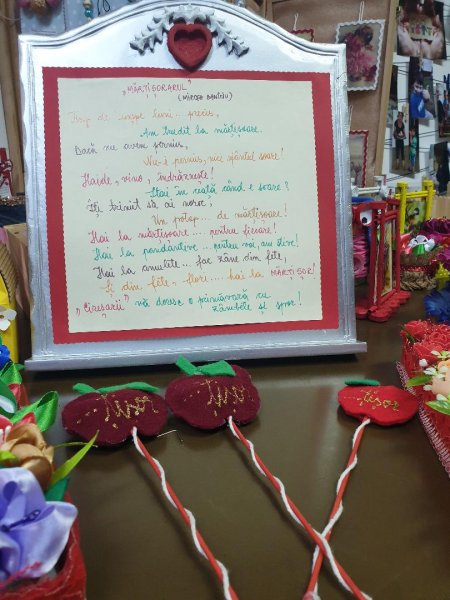 „MĂRȚIȘORARUL"
(MIRCEA DANCIU)
Timp de unșpe luni... precis,
Am trudit la mărțișoare.
Dacă nu avem permis,
Nu-i permis, nici sfântul soare!
Haide, vino, îndrăznește!
Stai în viață când e soare?
Îți trimit să ai noroc,
Un potop... de mărțișoare!
Hai la mărțișoare... pentru fiecare!
Hai la pandantive... pentru voi, au stive!
Hai la amulete... fac zâne din fete,
Și din fete - flori... hai la MĂRȚIȘOR!
"Cireșarii" vă doresc o primăvară cu
zâmbete și spor!
Tisor
Tisor
Tisor